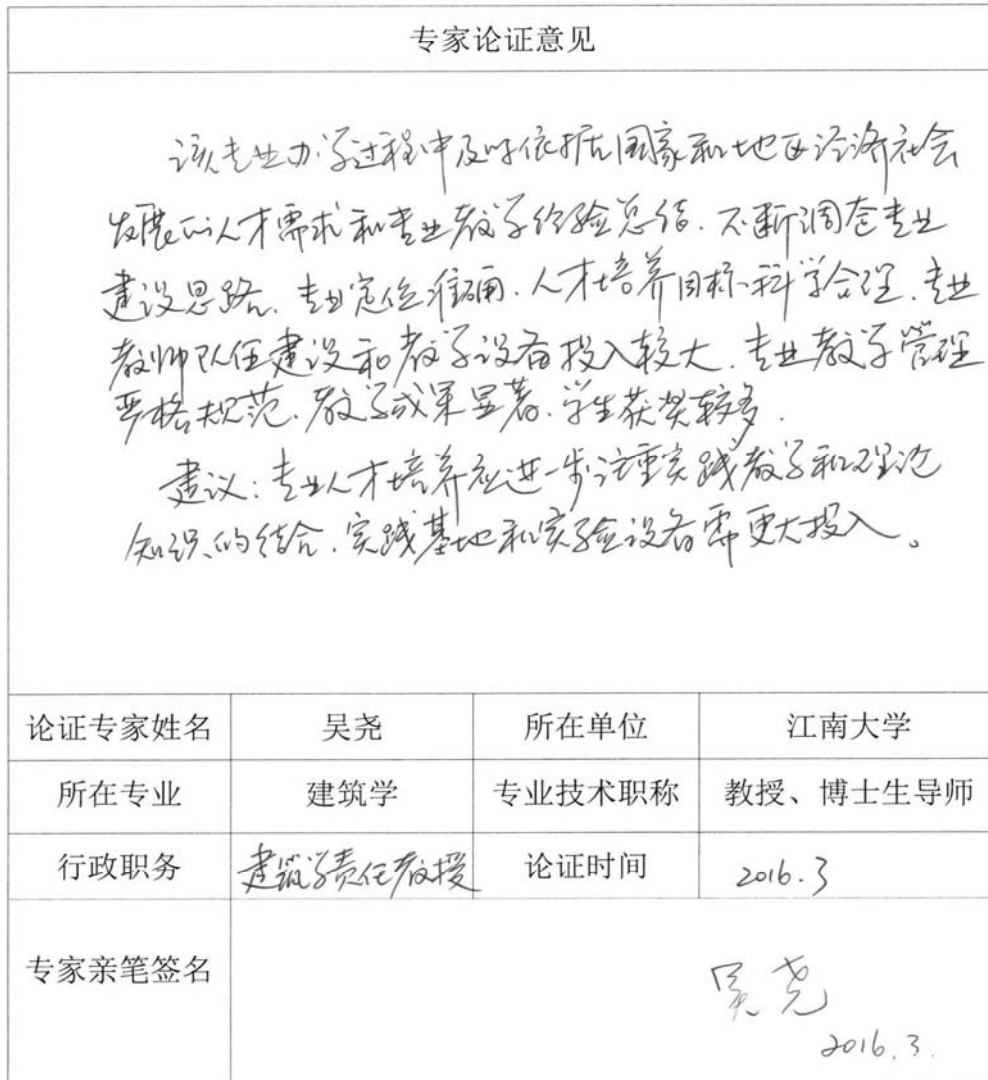 专家论证意见
该专业办学过程中及时依据国家和地区经济社会
发展的人才需求和专业教学经验总结.不断调整专业
建设思路.专业定位准确.人才培养目标科学合理.专业
教师队伍建设和教学设备投入较大.专业教学管理
严格规范.教学成果显著.学生获奖较多.
建议:专业人才培养应进一步注重实践教学和理论
知识的结合.实践基地和实验设备需更大投入。
论证专家姓名 吴尧 所在单位 江南大学
所在专业 建筑学 专业技术职称 教授、博士生导师
行政职务 建筑学责任教授 论证时间 2016.3
专家亲笔签名 吴尧
2016.3.